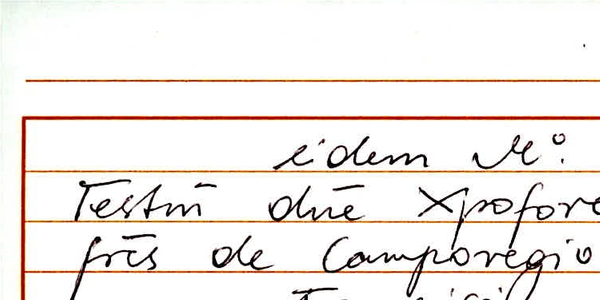 eidem Mº.
Testm̄ dnē Xpofore
fr̄s de Camporegio